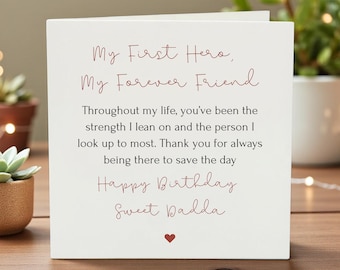 My First Hero,
My Forever Friend
Throughout my life, you've been the
strength I lean on and the person I
look up to most. Thank you for always
being there to save the day
Happy Birthday
Sweet Dadda